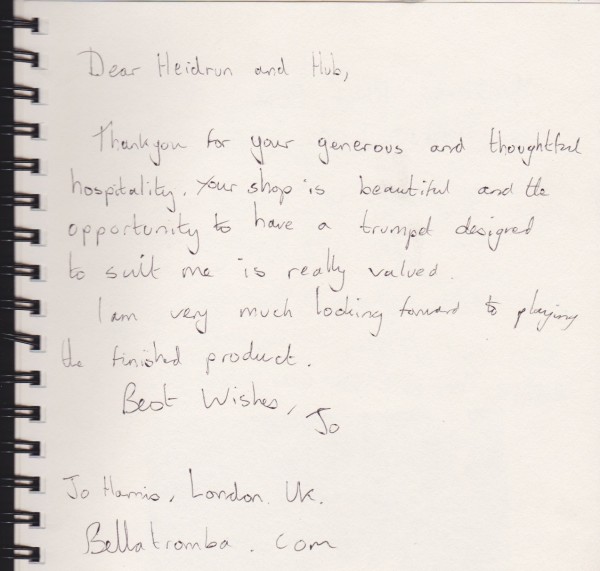 Dear Heidrun and Hub,
Thankyou for your generous and thoughtful
hospitality. Your shop is beautiful and the
opportunity to have a trumpet designed
to suit me is really valued.
I am very much looking forward to playing
the finished product.
Best Wishes, Jo
Jo Harris, London. UK.
Bellatromba.com